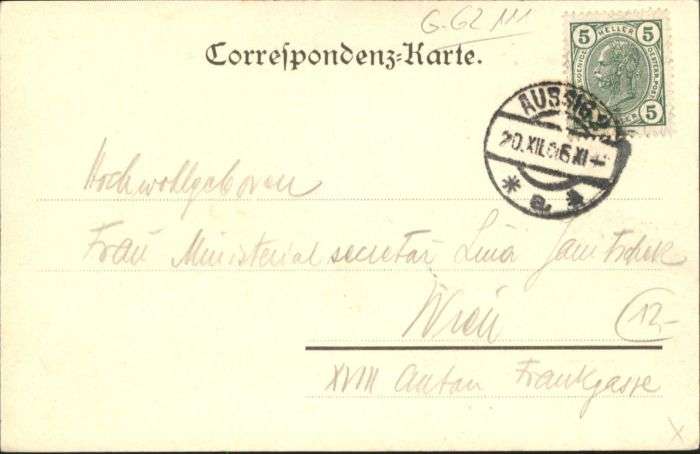 G-62 111
Correspondenz-Karte.
5 HELLER 5
5
HELLER
AUSSIG
20.XII.06 XI
* a. *
Hochwohlgeboren
Frau Ministerialsecretär Lina Janitschek
Wien
12-
XVIII Anton Frankgasse
x